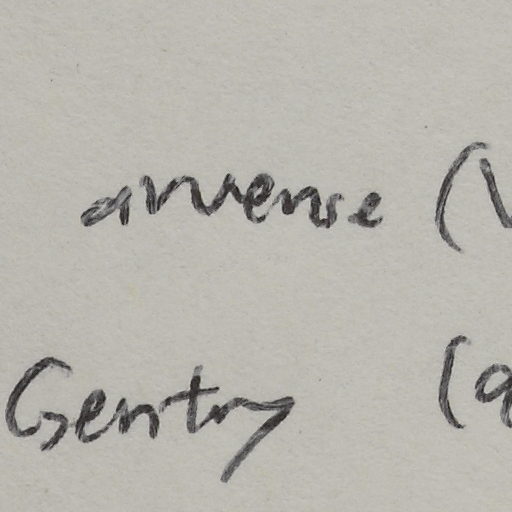 arvense (
Gentry (